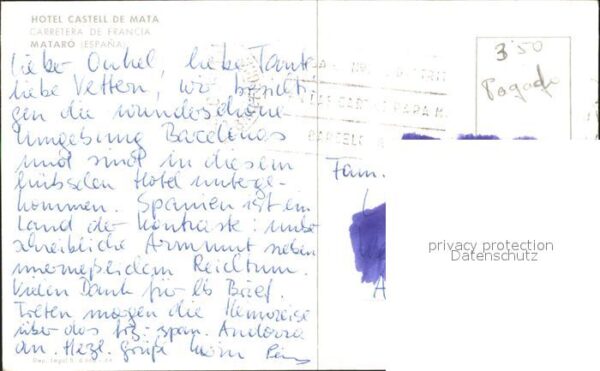 HOTEL CASTELL DE MATA
CARRETERA DE FRANCIA
MATARÓ (ESPAÑA)
Liebe Onkel, liebe Tante
liebe Vettern, wir besichti
gen die wunderschöne
Umgebung Barcelonas
und sind in diesem
hübschen Hotel unterge-
kommen. Spanien ist ein
Land der Kontraste: unbe
schreibliche Armmut neben
unermeßlichem Reichtum.
Vielen Dank für lb Brief.
Treten morgen die Heimreise
über das frz.-span. Andorra
an. Herzl. Grüße
3'50
Pagado
BARCELONA
Fam.
privacy protection
Datenschutz